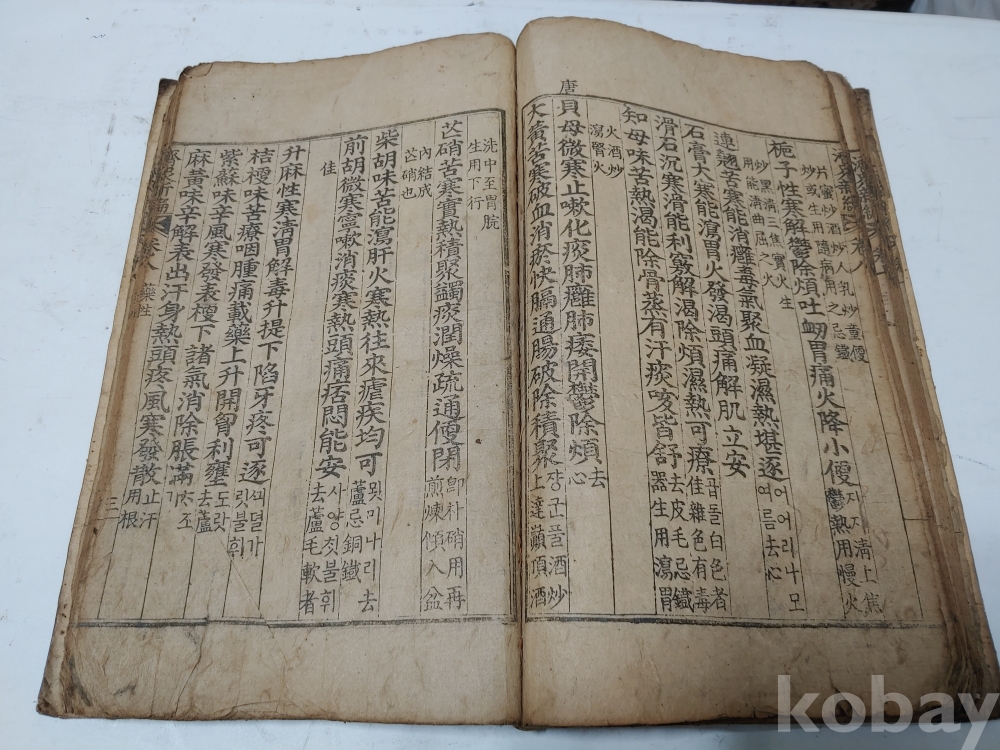 片蜜炒酒炒人乳炒童便
炒或生用隨病用之忌鐵
梔子性寒解鬱除煩吐衄胃痛火降小便 지지淸上焦
鬱熱用慢火
炒黑淸三焦實火生
用能淸曲屈之火
連翹苦寒能消癰毒氣聚血凝濕熱堪逐 어어리나모
여름去心
石膏大寒能瀉胃火發渴頭痛解肌立安
滑石沉寒滑能利竅解渴除煩濕熱可療 곱돌白色者
佳雜色有毒
知母味苦熱渴能除骨蒸有汗痰咳皆舒 去皮毛忌鐵
器生用瀉胃
火酒炒
瀉腎火
唐
貝母微寒止嗽化痰肺癰肺痿開鬱除煩 去
心
大黃苦寒破血消瘀快膈通腸破除積聚 쟝군플酒炒
上達巔頂酒
洗中至胃脘
生用下行
芒硝苦寒實熱積聚蠲痰潤燥疏通便閉 卽朴硝用再
煎煉傾入盆
內結成
芒硝也
柴胡味苦能瀉肝火寒熱往來瘧疾均可 묏미나리去
蘆忌銅鐵
前胡微寒寧嗽消痰寒熱頭痛痞悶能安 사양칫불휘
去蘆毛軟者
佳
升麻性寒淸胃解毒升提下陷牙疼可逐 씌덜가
릿불휘
桔梗味苦療咽腫痛載藥上升開胷利壅 도랏
去蘆
紫蘇味辛風寒發表梗下諸氣消除脹滿
麻黃味辛解表出汗身熱頭疼風寒發散 止汗
用根
濟衆新編 卷八 藥性 三
kobay